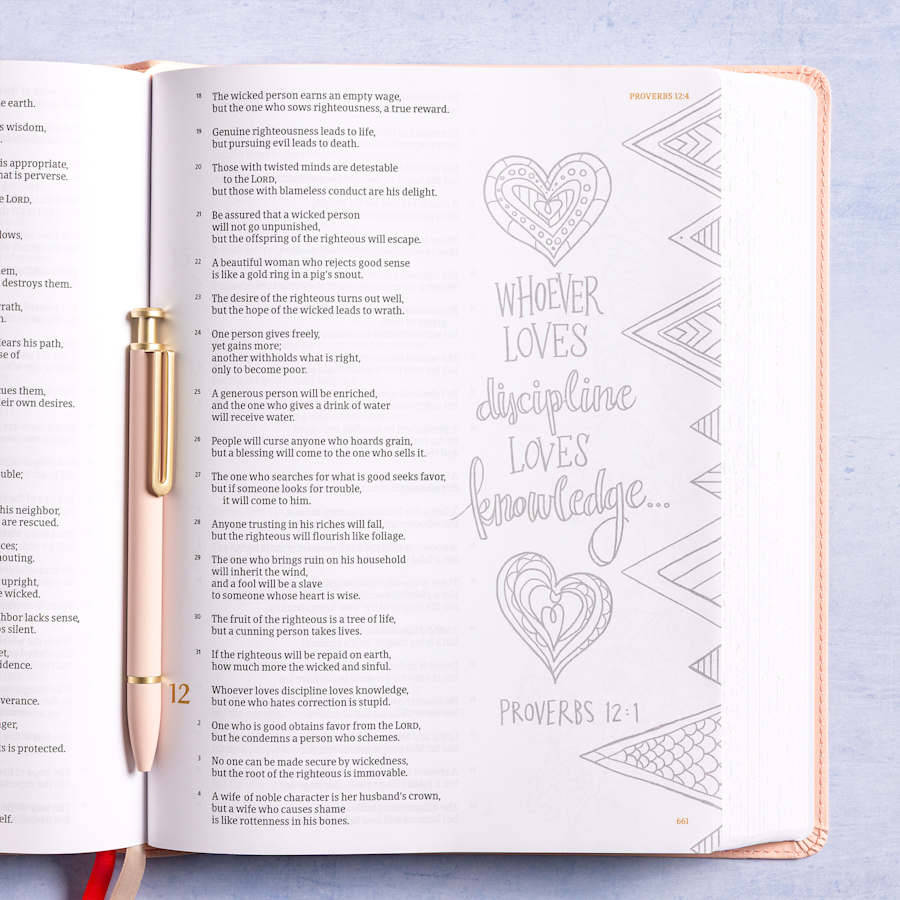 e earth.
s wisdom,
is appropriate,
hat is perverse.
e LORD,
lows,
em,
destroys them.
rath,
n.
lears his path,
se of
cues them,
eir own desires.
uble;
his neighbor,
are rescued.
ces;
houting.
upright,
e wicked.
hbor lacks sense,
s silent.
et,
idence.
verance.
nger,
ts is protected.
elf.
18 The wicked person earns an empty wage,
but the one who sows righteousness, a true reward.
19 Genuine righteousness leads to life,
but pursuing evil leads to death.
20 Those with twisted minds are detestable
to the LORD,
but those with blameless conduct are his delight.
21 Be assured that a wicked person
will not go unpunished,
but the offspring of the righteous will escape.
22 A beautiful woman who rejects good sense
is like a gold ring in a pig's snout.
23 The desire of the righteous turns out well,
but the hope of the wicked leads to wrath.
24 One person gives freely,
yet gains more;
another withholds what is right,
only to become poor.
25 A generous person will be enriched,
and the one who gives a drink of water
will receive water.
26 People will curse anyone who hoards grain,
but a blessing will come to the one who sells it.
27 The one who searches for what is good seeks favor,
but if someone looks for trouble,
it will come to him.
28 Anyone trusting in his riches will fall,
but the righteous will flourish like foliage.
29 The one who brings ruin on his household
will inherit the wind,
and a fool will be a slave
to someone whose heart is wise.
30 The fruit of the righteous is a tree of life,
but a cunning person takes lives.
31 If the righteous will be repaid on earth,
how much more the wicked and sinful.
12 Whoever loves discipline loves knowledge,
but one who hates correction is stupid.
2 One who is good obtains favor from the LORD,
but he condemns a person who schemes.
3 No one can be made secure by wickedness,
but the root of the righteous is immovable.
4 A wife of noble character is her husband's crown,
but a wife who causes shame
is like rottenness in his bones.
PROVERBS 12:4
WHOEVER
LOVES
discipline
LOVES
knowledge...
PROVERBS 12:1
661